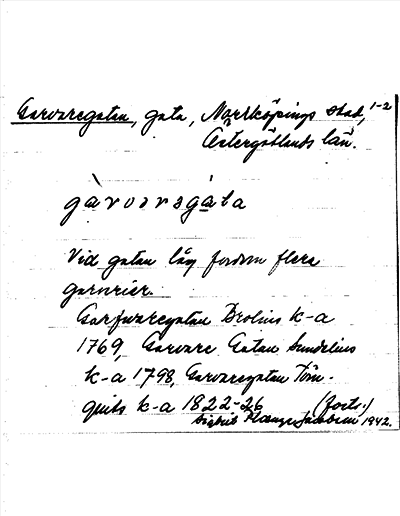 Garvaregatan, gata, Norrköpings stad, 1-2
Östergötlands län.
gàrvarəgáta
Vid gatan låg fordom flera
garverier.
Garfwaregatan Brolins k-a
1769, Garvare Gatan Sundelius
k-a 1798, Garvaregatan Törn-
quists k-a 1822-26 (forts.)
1942.